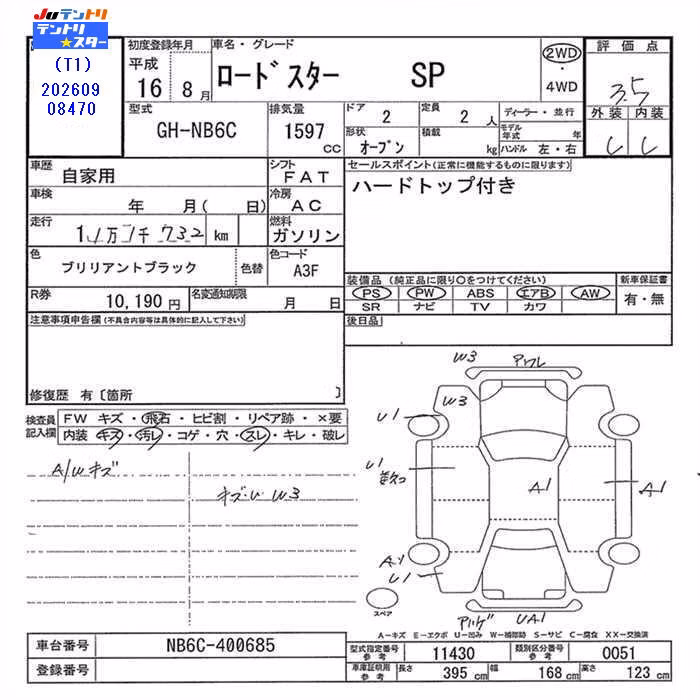 JUテントリ
テントリ
★スター
(T1)
202609
08470
初度登録年月
平成
16 8 月
車名・グレード
ロードスター SP
2WD
・
4WD
評価点
3.5
外装 内装
型式
GH-NB6C
排気量
1597 cc
ドア
2
定員
2 人
形状
オープン
積載
kg
ディーラー・並行
モデル年式 年
ハンドル 左・右
車歴
自家用
シフト
FAT
車検
年 月( 日)
冷房
AC
走行
km
燃料
ガソリン
色
ブリリアントブラック
色替
色コード
A3F
R券
10,190 円
名変通知期限
月 日
セールスポイント(正常に機能するものに限ります)
ハードトップ付き
装備品(純正品に限り○をつけてください)
PS PW ABS エアB AW
SR ナビ TV カワ
新車保証書
有・無
後日品
注意事項申告欄(不具合内容等は具体的に記入して下さい)
修復歴 有〔箇所 〕
検査員
記入欄
FW キズ・飛石・ヒビ割・リペア跡・×要
内装 キズ・汚レ・コゲ・穴・スレ・キレ・破レ
A/Wキズ
キズ・U W3
W3
アワレ
U1
W3
U1
A1
A1
U1
UA1
スペア
A-キズ E-エクボ U-凹み W-補修跡 S-サビ C-腐食 XX-交換済
車台番号
NB6C-400685
登録番号
型式指定番号
参考
11430
類別区分番号
参考
0051
車庫証明用
参考
長さ 395 cm 幅 168 cm 高さ 123 cm